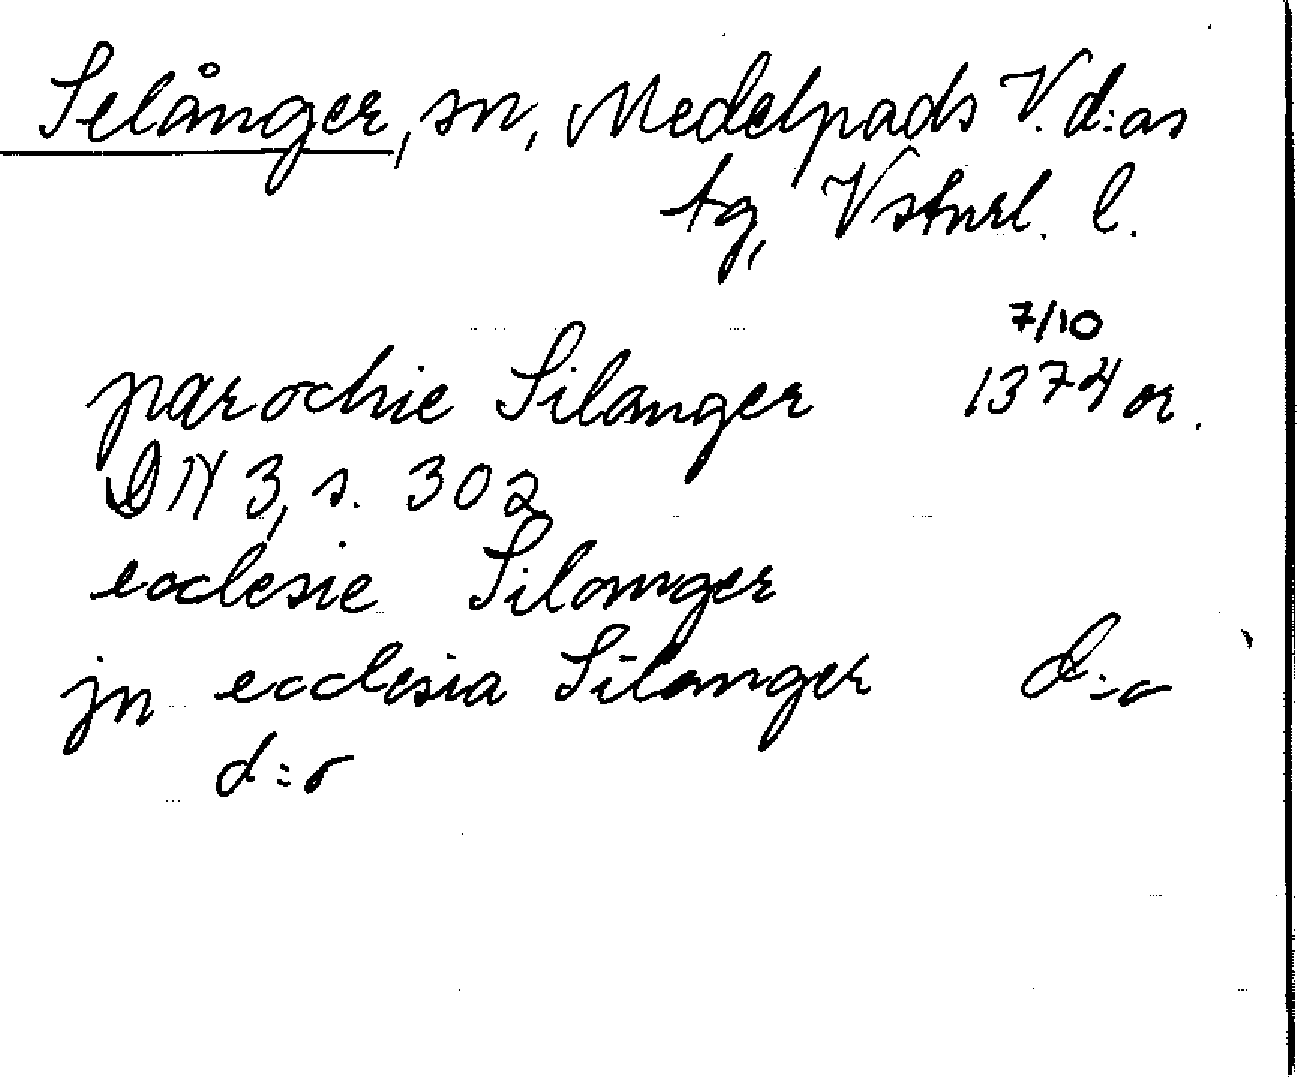 Selånger, sn, Medelpads V. d:as
tg, Vstnrl. l.
7/10
parochie Silanger 1374 or.
DN 3, s. 302
ecclesie Silanger
jn ecclesia Silanger d:o
d:o